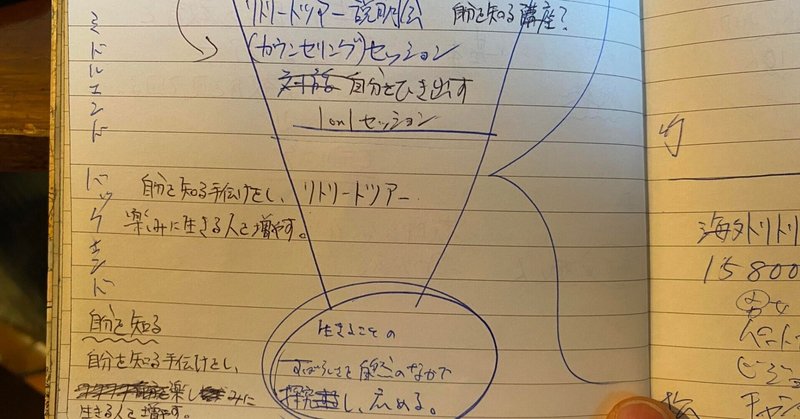 リトリートツアー説明会 自分を知る講座?
(カウンセリング)セッション
自分をひき出す
1on1セッション
ミドルエンド
バックエンド
自分を知る手伝けをし、リトリートツアー
楽しみに生きる人を増やす。
自分を知る
自分を知る手伝けをし、
楽しみに
生きる人を増やす。
生きることの
すばらしさを自然のなかで
探究し、広める。
海外リトリ
15800